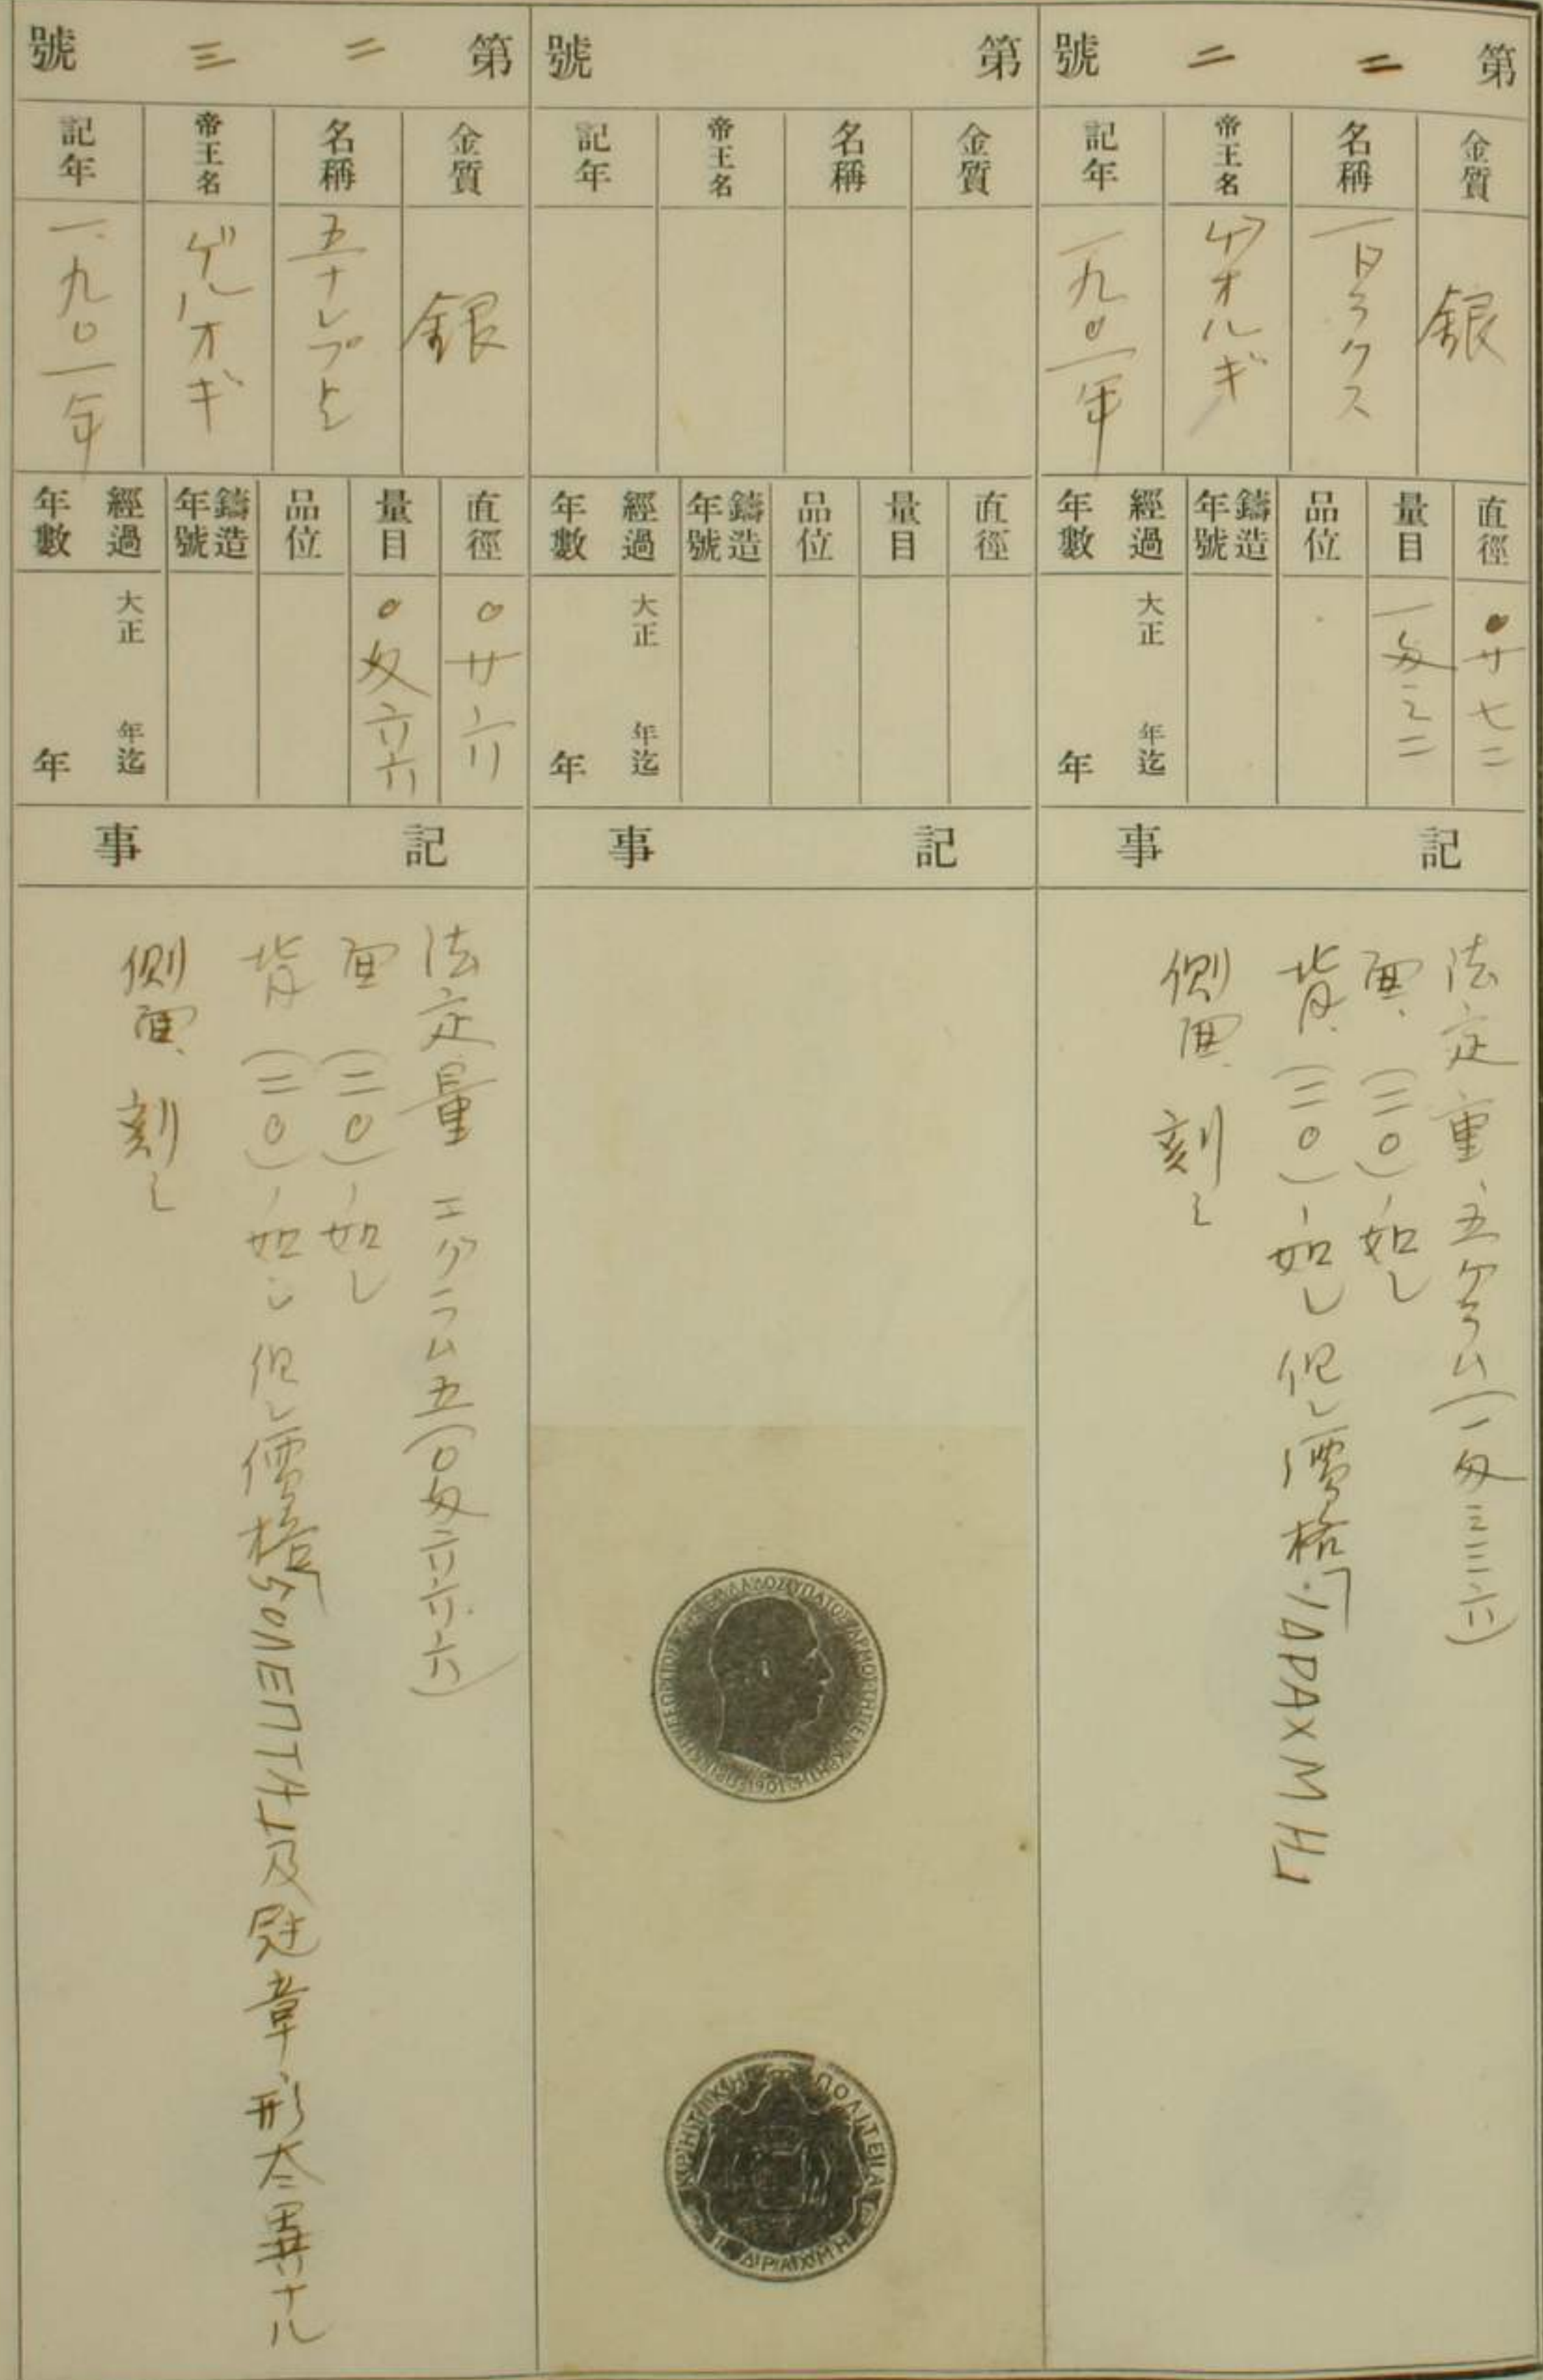 第二二號
金質
銀
名稱
一ドラクス
帝王名
ゲオルギ
記年
一九〇一年
直徑
〇寸七二
量目
一匁三二
品位
鑄造年號
經過年數
大正 年迄
年
記事
法定重、五グラム(一匁三三六)
面、(二〇)ノ如し
背、(二〇)ノ如し 但し價格「1ΔΡΑΧΜΗ」
側面、刻ミ
第 號
金質
名稱
帝王名
記年
直徑
量目
品位
鑄造年號
經過年數
大正 年迄
年
記事
ΚΡΗΤΙΚΗ ΠΟΛΙΤΕΙΑ
1 ΔΡΑΧΜΗ
第二三號
金質
銀
名稱
五十レプト
帝王名
ゲルオギ
記年
一九〇一年
直徑
〇寸六
量目
〇匁六六
品位
鑄造年號
經過年數
大正 年迄
年
記事
法定量 二グラム五(〇匁六六六)
面 (二〇)ノ如し
背 (二〇)ノ如し 但し價格「50ΛΕΠΤΑ」及冠章ノ形大異ナル
側面、刻ミ